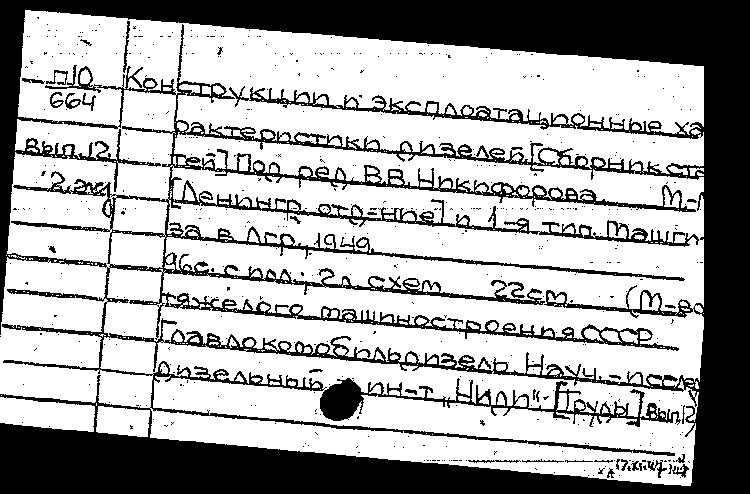 П10
664
Вып.12
2 экз
Конструкции и эксплоатационные ха
рактеристики дизелей. [Сборник ста
тей] Под ред. В.В. Никифорова. М.-Л
[Ленингр. отд-ние] и 1-я тип. Машги-
за в Лгр., 1949.
96с. с илл.; 2л. схем 22см. (М-во
тяжелого машиностроения СССР.
Главлокомобильдизель. Науч.-исслед
дизельный ин-т "Ниди". [Труды]. Вып.12)